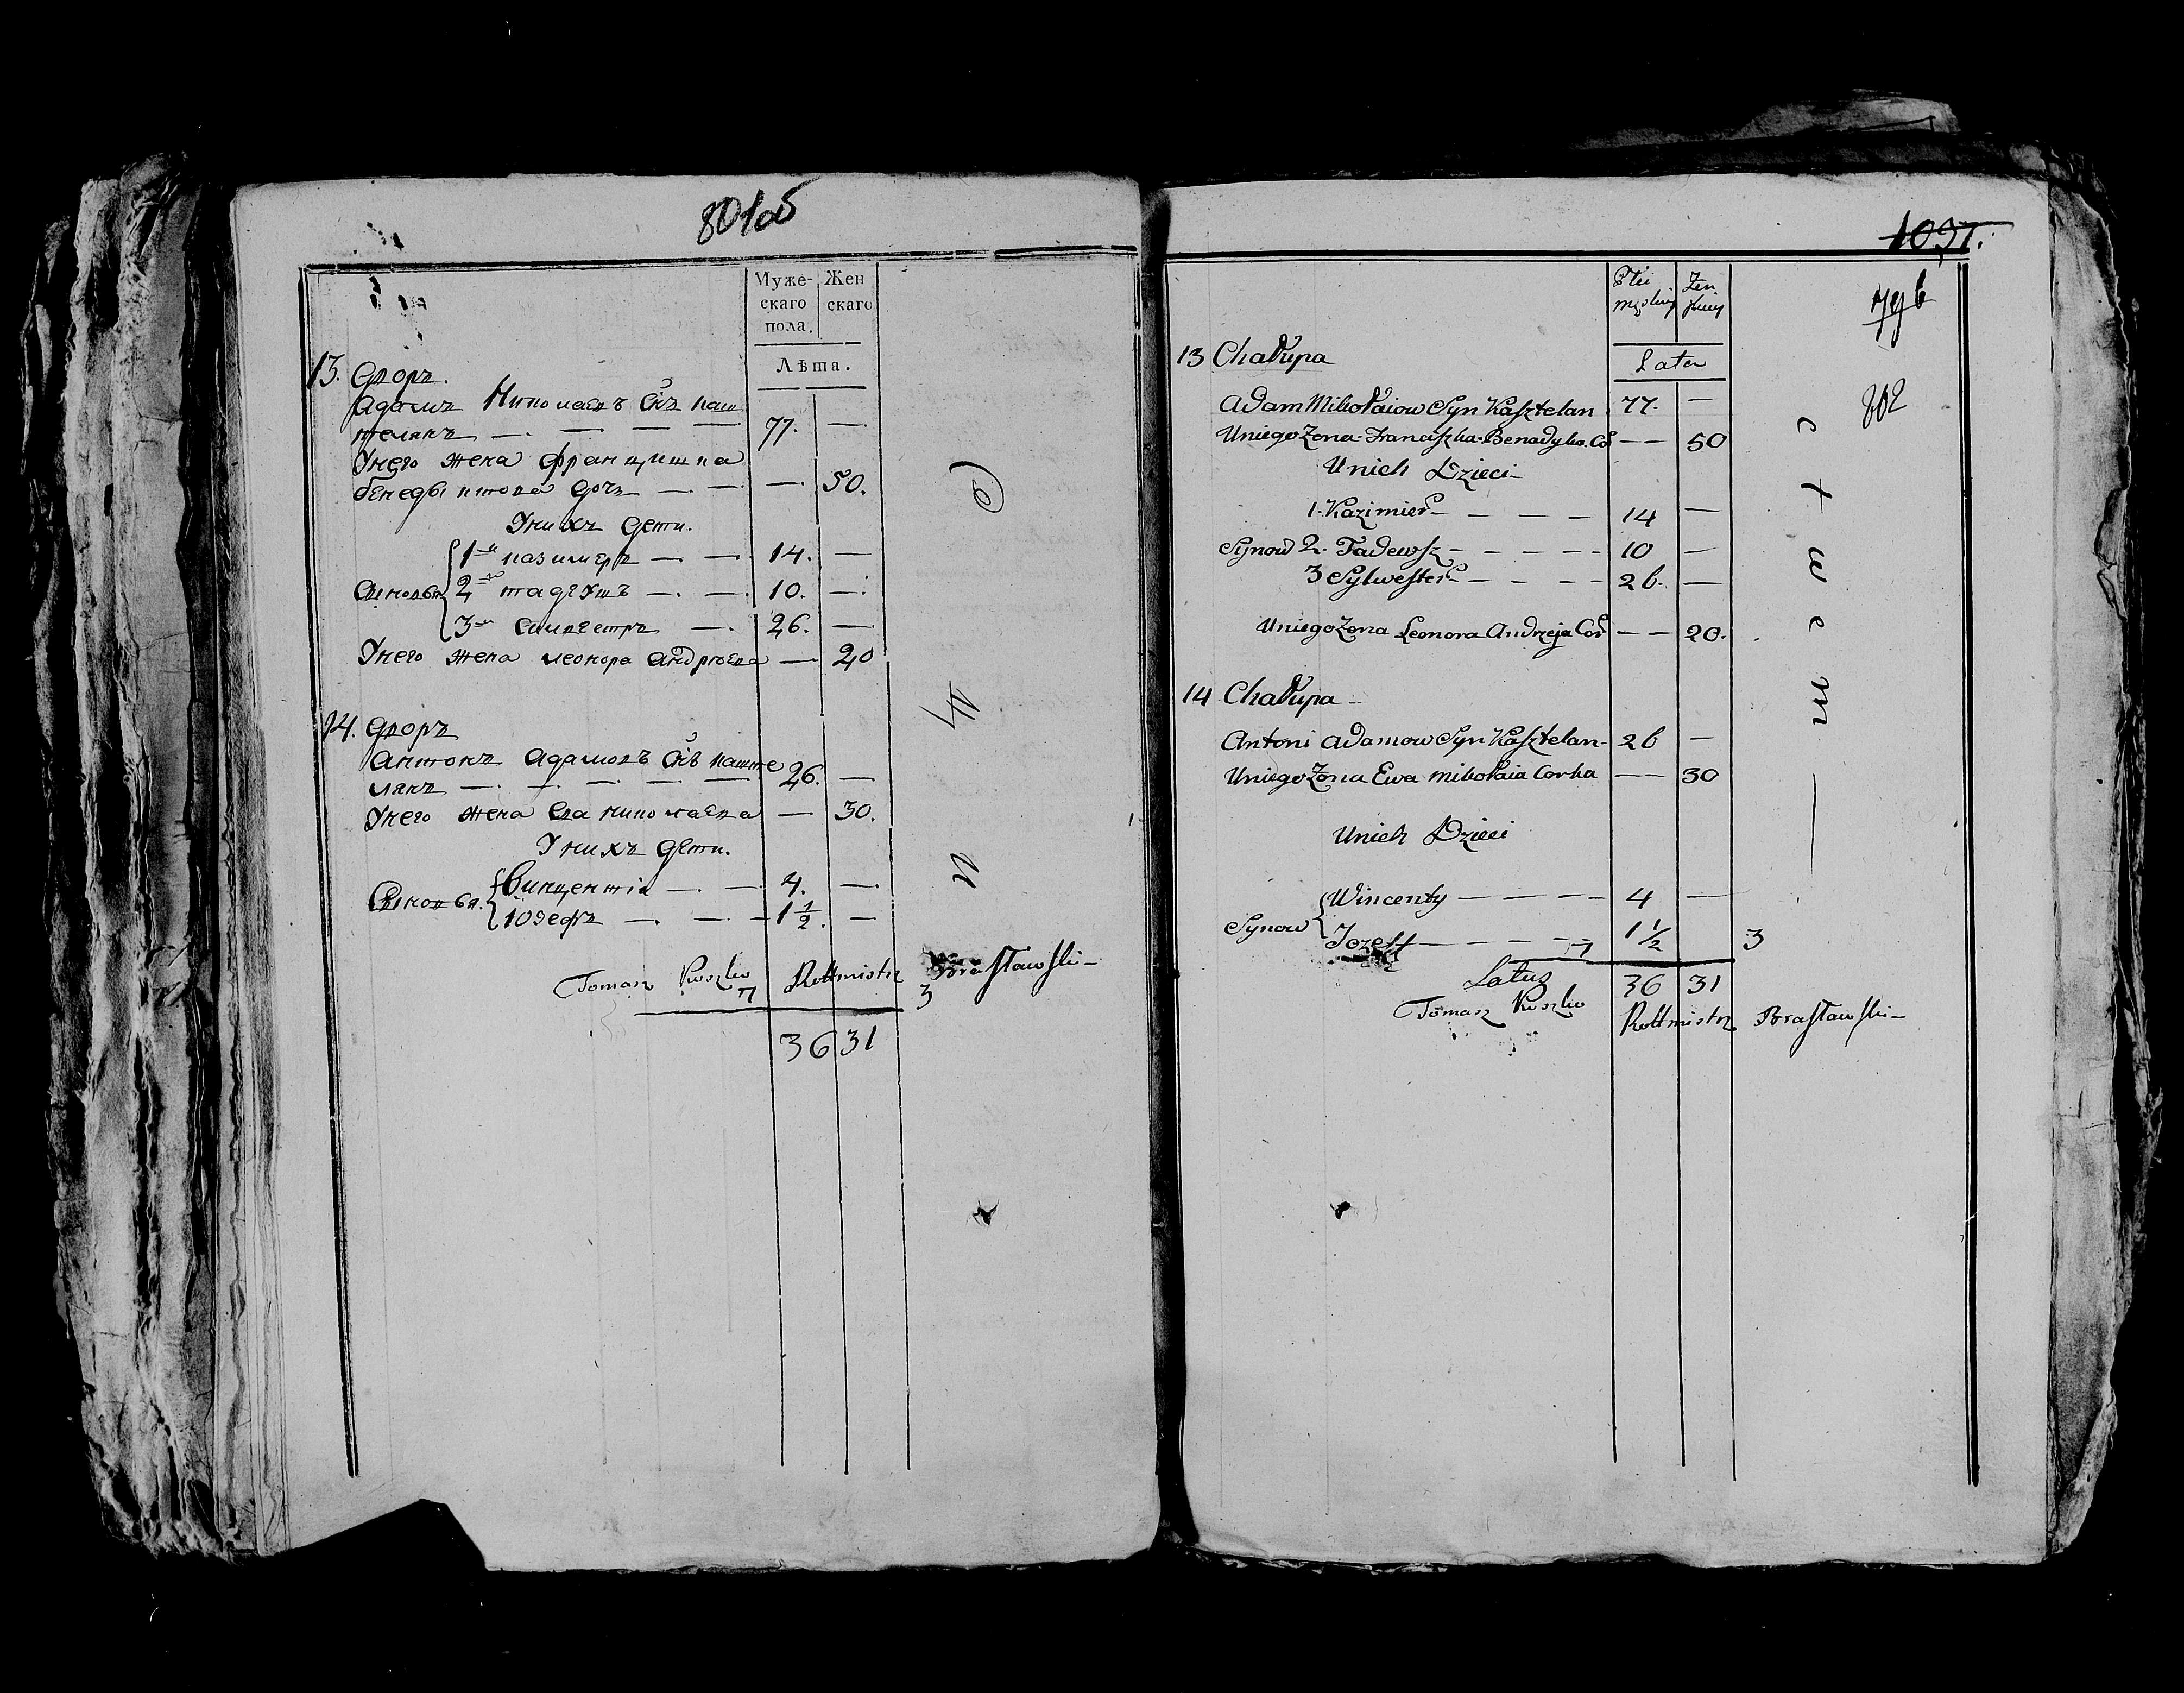 801об
Муже- Жен
скаго скаго
пола.
Лѣта.
13. Дворъ.
Адамъ Николаевъ Снъ Каш
телянъ — — — — 77. —
Унего жена Францишка
бенедыктова дочь — — — 50.
Унихъ дети.
1й казимеръ — — 14. —
Сыновья 2й тадеушъ — — 10. —
3й силвестръ — 26. —
Унего жена леонора андрюева — 20
14. дворъ
Антонъ Адамовъ Снъ каште
лянъ — — — — 26. —
Унего жена Ева николаева — 30.
Унихъ дети.
Сыновья. Винцентій — — 4. —
Юзефъ — — — 1 1/2. —
Tomasz Koszko Rottmistrz Brasławski
7 3
36 31
С
ш
л
1091.
796
802
Płci Żen
męskiey skiey
Lata
13 Chałupa
Adam Mikołaiow Syn Kasztelan 77. —
Uniego Zona Franciszka Benadykta Co — — 50
Unich Dzieci
1. Kazimier — — — — 14 —
Synow 2. Tadewsz — — — — 10 —
3 Sylwester — — — — 26. —
Uniego Zona Leonora Andrzeja Cor — — 20.
14 Chałupa
Antoni Adamow Syn Kasztelan 26 —
Uniego Zona Ewa Mikołaia Corka — — 30
Unich Dzieci
Wincenty — — — — 4 —
Synow Jozeff — — — — 1 1/2
7 3
Latus 36 31
Tomasz Koszko Rottmistrz Brasławski
c
t
w
e
m